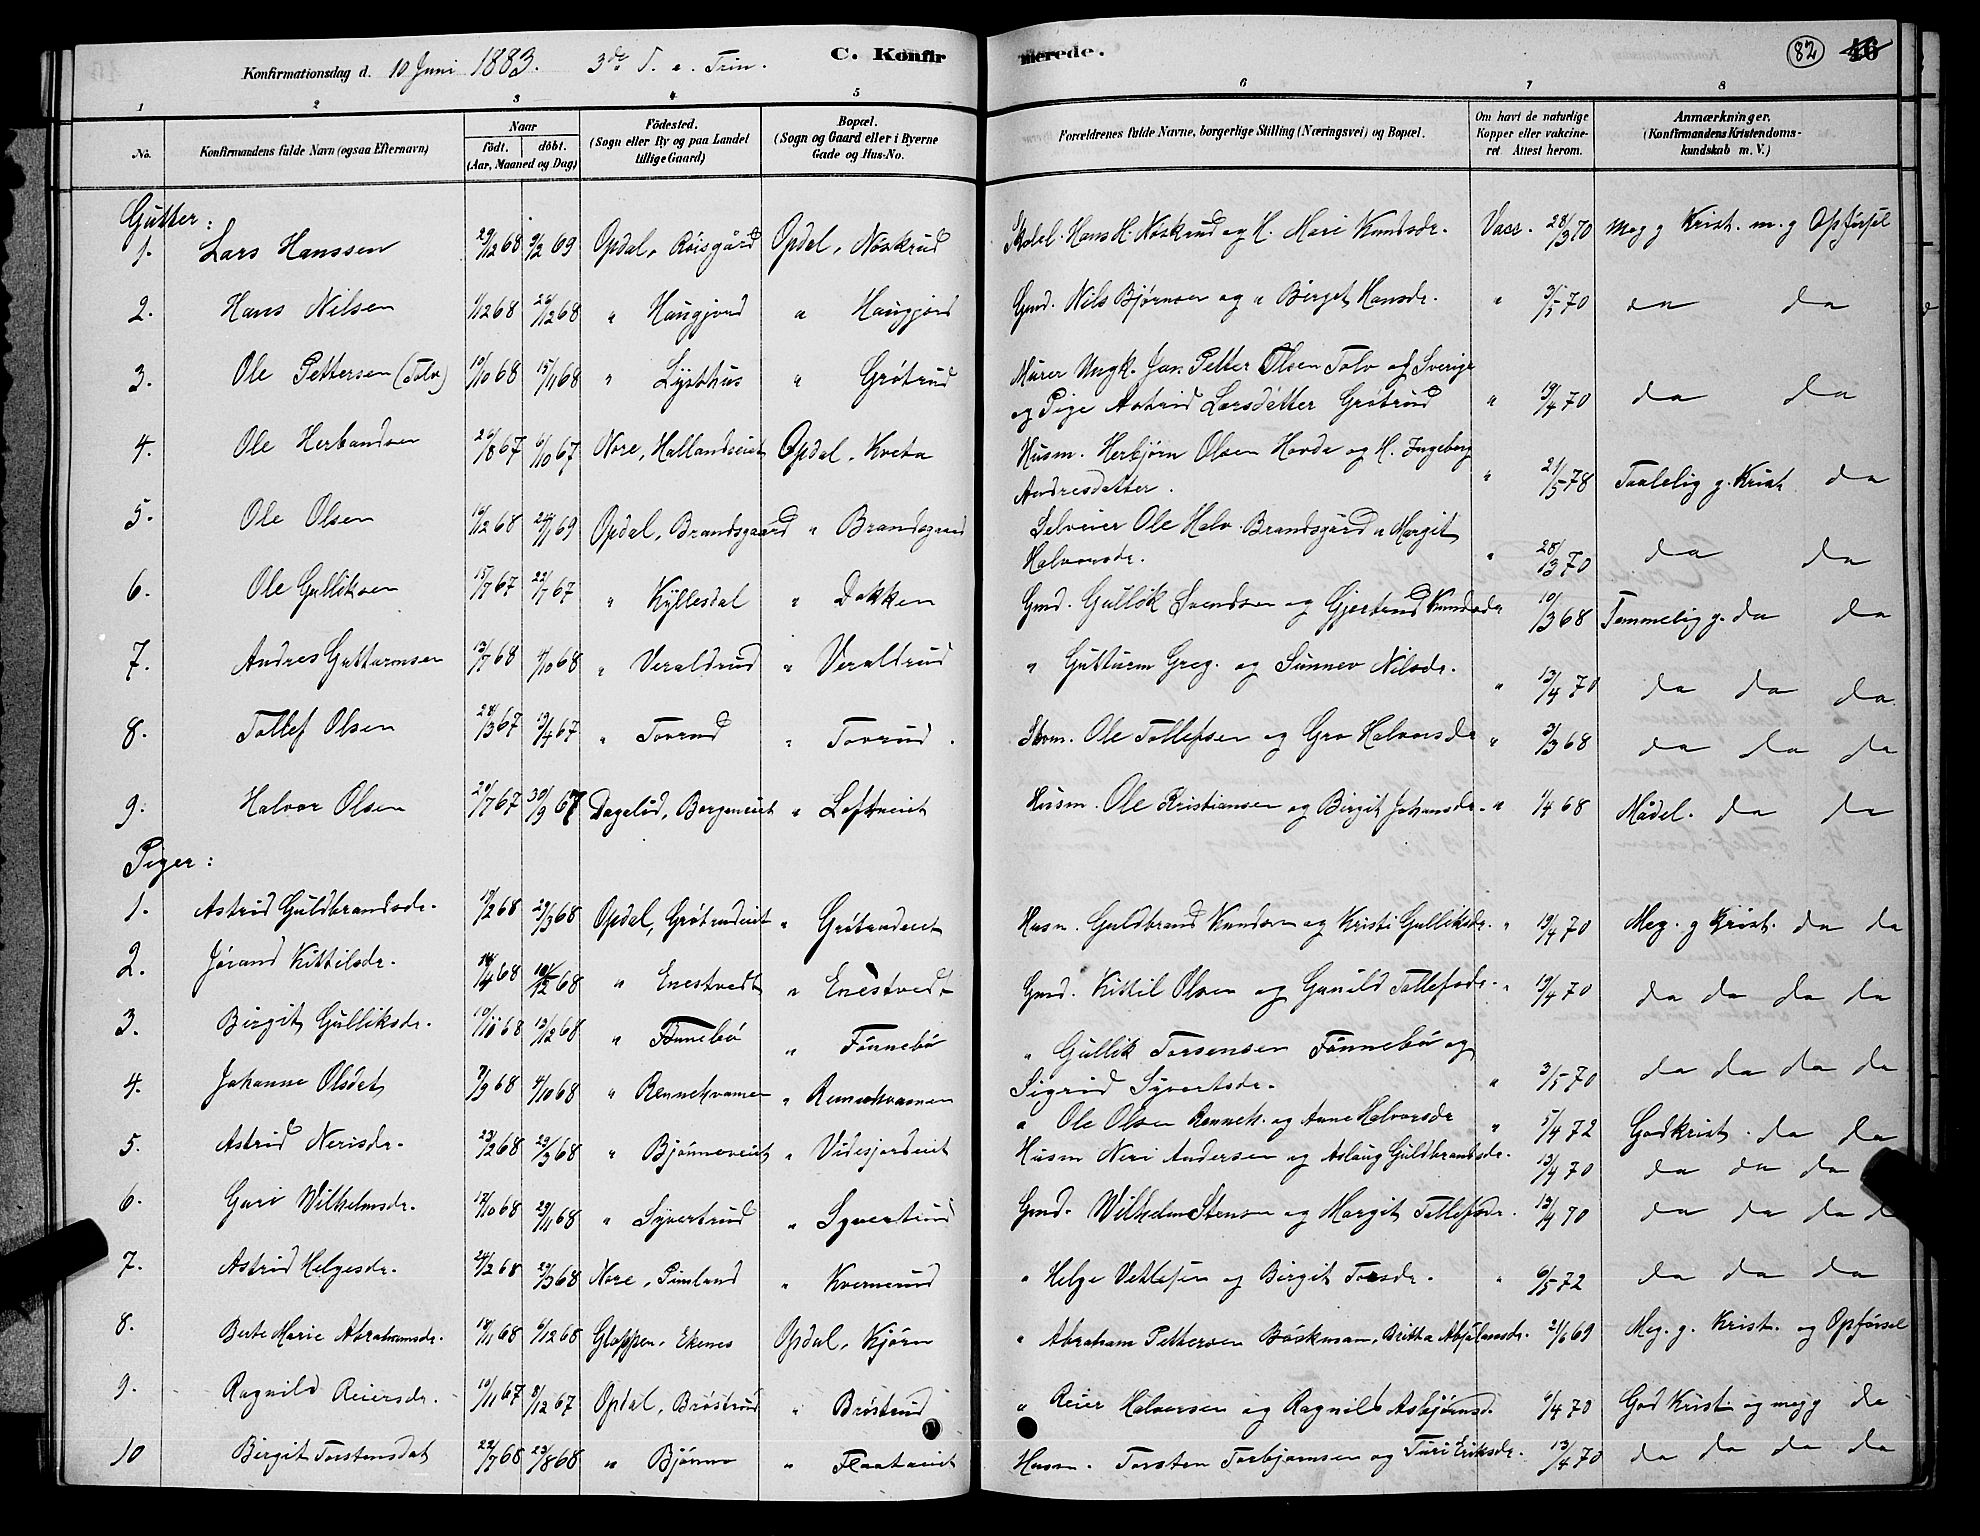 Konfirmationsdag d. 10 Juni 1883. 3de S. e. Trin. C. Konfirmerede. 82 46
1 2 3 4 5 6 7 8
No. Konfirmandens fulde Navn (ogsaa Efternavn) Naar født. døbt. (Aar, Maaned og Dag) Fødested. (Sogn eller By og paa Landet tillige Gaard) Bopæl. (Sogn og Gaard eller i Byerne Gade og Hus-No. Forældrenes fulde Navne, borgerlige Stilling (Næringsvei) og Bopæl. Om havt de naturlige Kopper eller vakcineret Attest herom. Anmærkninger. (Konfirmandens Kristendomskundskab m. V.)
Gutter:
1. Lars Hanssen 29/12 68 9/2 69 Opdal, Roisgård Opdal, Noskrud Hans H. Noskrud og H. Mari Knudsdr. Vacc. 28/3 70 Meg g Krist. m. g Opførsel
2. Hans Nilsen 1/12 68 26/12 68 " Haugjord " Haugjord Gmd. Nils Bjørnsen og " Birget Hansdr. " 3/5 70 da da
3. Ole Pettersen (Tolv) 10/10 68 15/11 68 " Lysthus " Grøtrud Murer Ungk. Jan Petter Olsen Tolv af Sverige
og Pige Astrid Larsdatter Grøtrud " 19/4 70 da da
4. Ole Herbandsen 26/8 67 6/10 67 Nore, Hallandseiet Opdal, Kveta Husm. Herbjørn Olsen Hovde og H. Ingeborg
Andresdatter. " 21/5 78 Taalelig g. Krist. da
5. Ole Olsen 16/12 68 24/1 69 Opdal, Brandsgaard " Brandsgaard Selveier Ole Halv. Brandsgård " Margit
Halvorsdr. " 28/3 70 da da
6. Ole Gulliksen 15/7 67 22/7 67 " Kyllesdal " Dokken Gmd. Gullik Svendsen og Gjertrud Knudsdr 10/3 68 Temmelig g. da da
7. Andres Gutturmsen 13/7 68 4/10 68 " Veraldrud " Veraldrud " Gutturm Greg. og Sunnev Nilsdr. " 13/4 70 da da da
8. Tollef Olsen 28/3 67 13/4 67 " Tovrud " Tovrud. Ole Tollefsen og Gro Halvorsdr " 3/3 68 da da da
9. Halvor Olsen 20/7 67 30/9 67 Dagelid, Borgeneiet " Lofteiet Husm. Ole Kristiansen og Birgit Johansdr. " 1/4 68 Mådel. da da
Piger:
1. Astrid Guldbrandsdr. 10/2 68 29/3 68 Opdal, Grøtrudeiet " Grøtrudeiet Husm. Guldbrand Knudsen og Kristi Gulliksdr. " 19/4 70 Meg. g Krist. da da
2. Jørand Kittilsdr. 14/4 68 68 " Enestvedt " Enestvedt Gmd. Kittil Olsen og Gunild Tollefsdr. " 19/4 70 da da da da
3. Birgit Gulliksdr. 10/10 68 13/12 68 " Fønnebø " Fønnebø " Gullik Torsensen Fønnebø og
Sigrid Syvertsdr. " 3/5 70 da da da da
4. Johanne Olsdat. 7/9 68 4/10 68 " Rennehvamen " Rennehvamen " Ole Olsen Renneh. og Anne Halvorsdr " 5/4 72 God krist. da da
5. Astrid Nerisdr. 23/2 68 29/3 68 " Bjønneveiet " Videsjordeiet Husm Neri Andersen og Aslaug Guldbrandsdr. 13/4 70 da da da
6. Guri Wilhelmsdr. 12/10 68 29/11 68 " Syvertrud " Syvertrud Gmd. Wilhelm Stensen og Margit Tollefsdr. 13/4 70 da da da d
7. Astrid Helgesdr. 24/2 68 29/3 68 Nore, Simland " Kvernrud " Helge Vetlesen og Birgit Torsdr. " 6/5 72 da da da
8. Berte Marie Abrahamsdr. 18/11 68 6/12 68 Gloppen, Ekenes Opdal, Kjørn " Abraham Pettersen Boskman, Britha Absalonsdr. 21/6 69 Meg. g. Krist. og Opførsel
9. Ragnild Reiersdr. 10/11 67 8/12 67 Opdal, Brøstrud " Brøstrud " Reier Halvorsen og Ragnild Asbjørnsd. 6/4 70 God Krist. og meg g da
10 Birgit Torstensdat 22/7 68 23/8 68 " Bjørnø " Flaataeiet Husm. Torsten Torbjørnsen og Turi Eriksdr. 13/4 70 da da da da